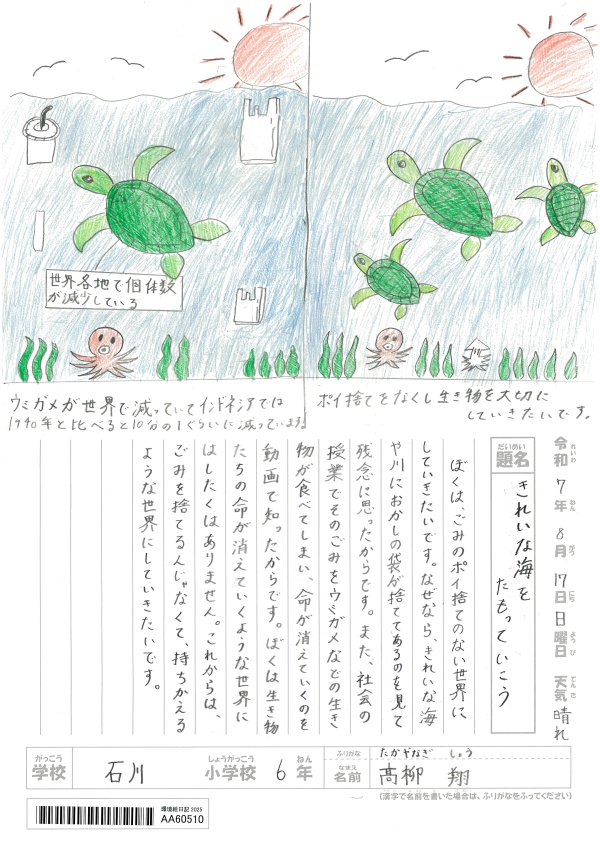 世界各地で個体数
が減少している
ウミガメが世界で減っていてインドネシアでは
1940年と比べると10分の1ぐらいに減っています。
ポイ捨てをなくし生き物を大切に
していきたいです。
令和7年8月17日日曜日 天気 晴れ
れいわ ねん がつ にち ようび てんき
だいめい
題名
きれいな海を
たもっていこう
ぼくは、ごみのポイ捨てのない世界に、
していきたいです。なぜなら、きれいな海
や川におかしの袋が捨ててあるのを見て
残念に思ったからです。また、社会の
授業でそのごみをウミガメなどの生き
物が食べてしまい、命が消えていくのを
動画で知ったからです。ぼくは生き物
たちの命が消えていくような世界に
はしたくはありません。これからは、
ごみを捨てるんじゃなくて、持ちかえる
ような世界にしていきたいです。
がっこう しょうがっこう ねん ふりがな たかやなぎ しょう
学校 石川 小学校 6年 なまえ 名前 髙柳 翔
(漢字で名前を書いた場合は、ふりがなをふってください)
環境絵日記 2025
AA60510